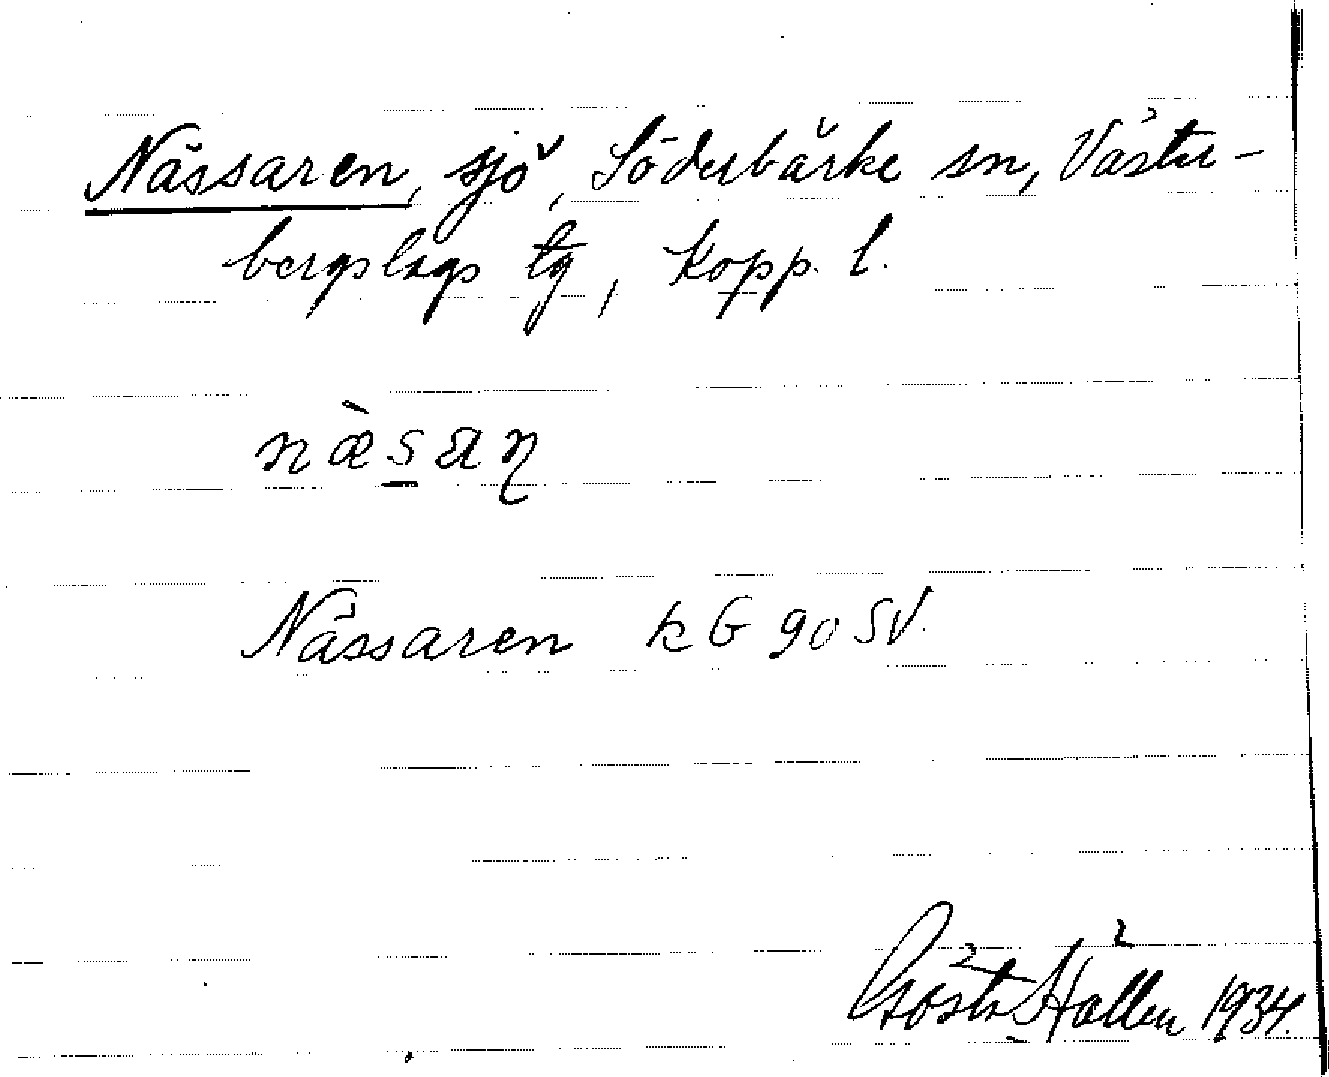 Nässaren, sjö, Söderbärke sn, Väster-
bergslags tg, Kopp. l.
næ̀s̲an̥
Nässaren kG 90 SV.
Gösta Hållen 1934.